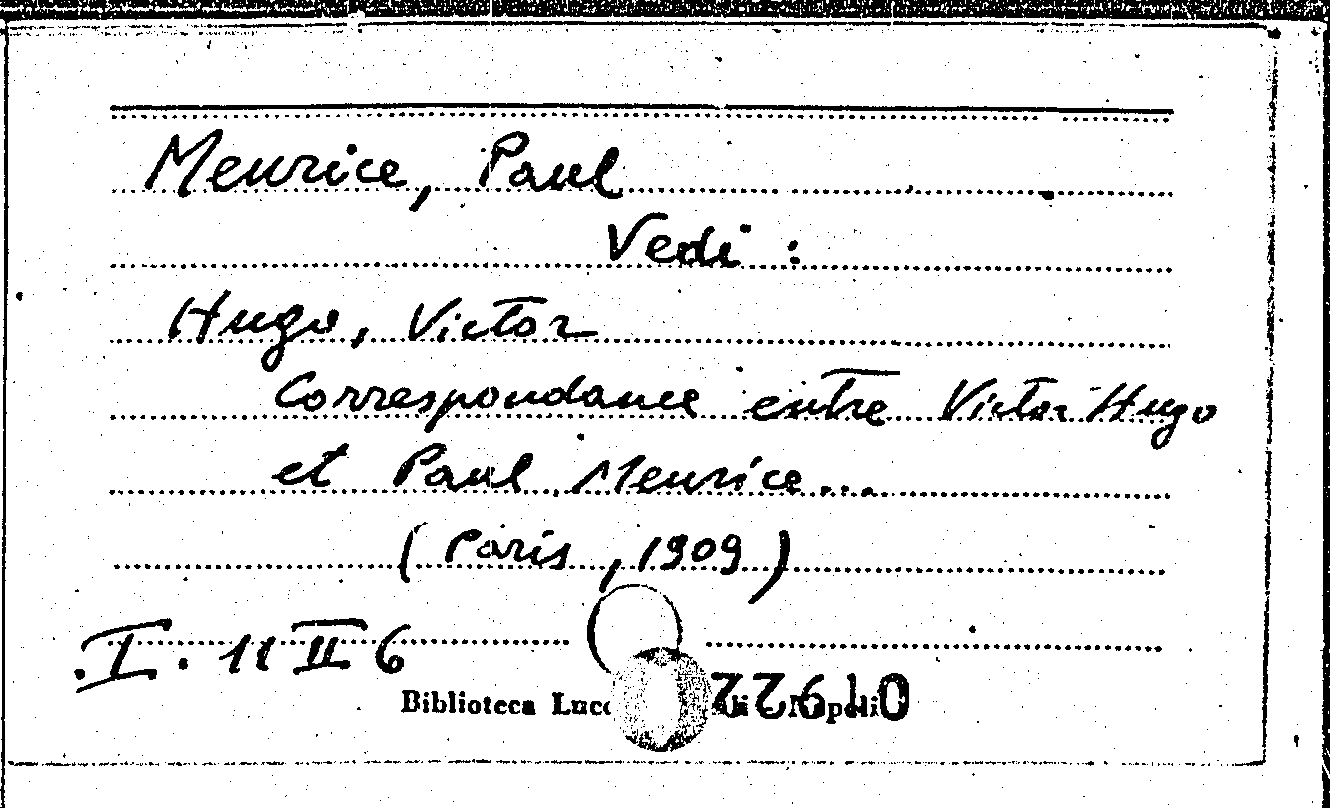 Meurice, Paul
Vedi :
Hugo, Victor
Correspondance entre Victor Hugo
et Paul Meurice...
(Paris, 1909)
I. 11 II 6
Biblioteca